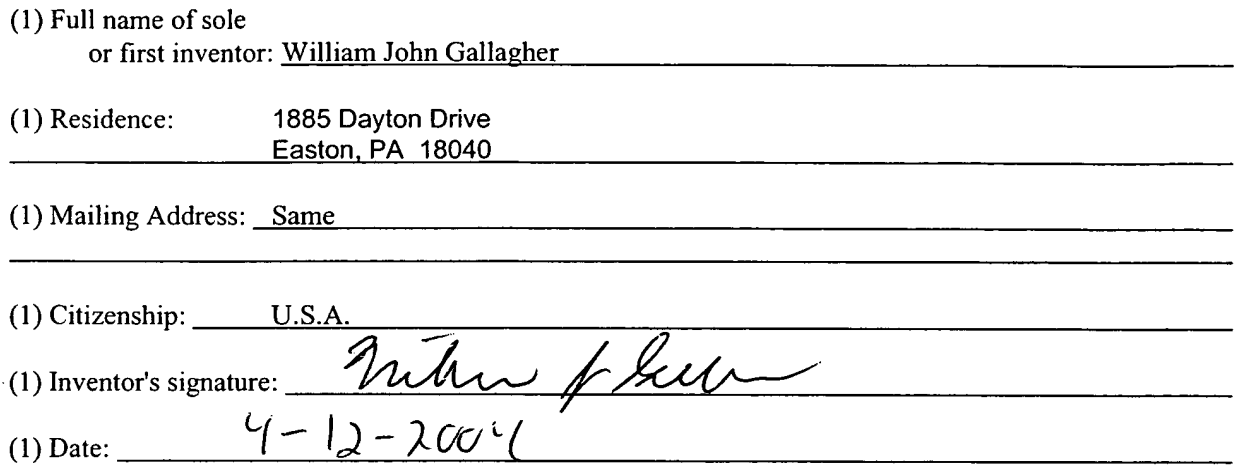 (1) Full name of sole
or first inventor: William John Gallagher
(1) Residence: 1885 Dayton Drive
Easton, PA 18040
(1) Mailing Address: Same
(1) Citizenship: U.S.A.
(1) Inventor's signature:
(1) Date: 4-12-2004